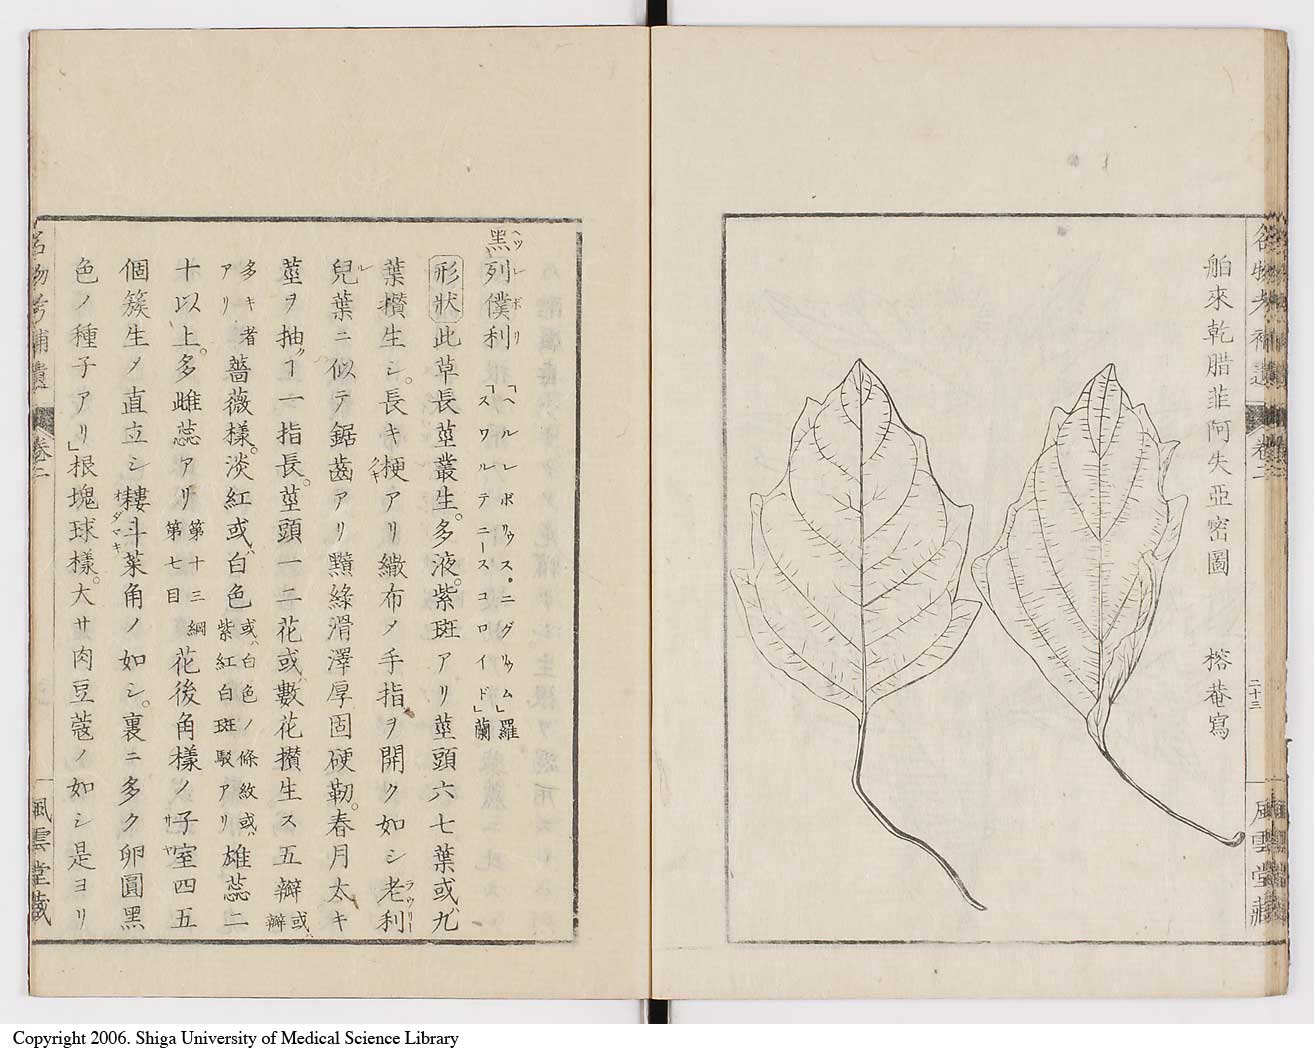 名物考補遺 卷二 二十三 風雲堂藏
舶來乾腊菲阿失亞密圖 榕菴寫
黒列僕利 「ヘルレボリゥス・ニグリゥム」羅 「スワルテニースコロイド」蘭
形状 此草長莖叢生。多液。紫斑アリ莖頭六七葉或九
葉攅生シ。長キ梗アリ繖布メ手指ヲ開ク如シ老利
兒葉ニ似テ鋸齒アリ黯綠滑澤厚固硬靭。春月太キ
莖ヲ抽ヿ一指長。莖頭一二花或數花攅生ス五瓣或瓣
多キ者アリ薔薇様。淡紅或白色或白色ノ條紋或紫紅白斑駁アリ雄蕊二
十以上。多雌蕊アリ第十三綱第七目花後角様ノ子室四五
個簇生メ直立シ耬斗菜角ノ如シ。裏ニ多ク卵圓黒
色ノ種子アリ」根塊球様。大サ肉豆蔲ノ如シ是ヨリ
名物考補遺 卷二 風雲堂藏
Copyright 2006. Shiga University of Medical Science Library